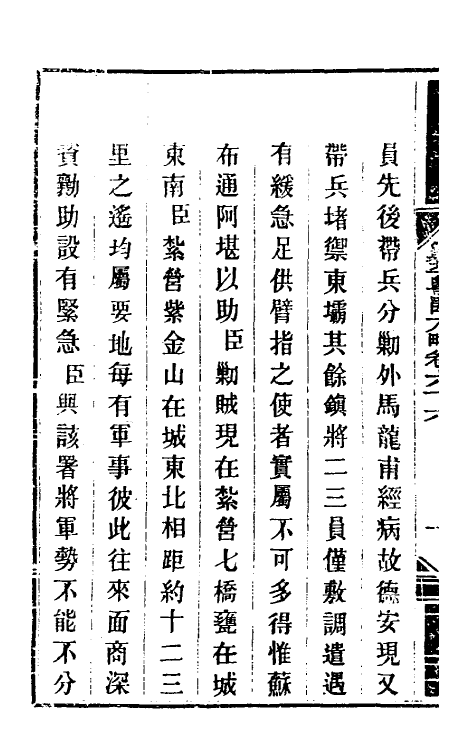 員先後帶兵分勦外馬龍甫經病故德安現又
帶兵堵禦東壩其餘鎮將二三員僅敷調遣遇
有緩急足供臂指之使者實屬不可多得惟蘇
布通阿堪以助臣勦賊現在紮營七橋甕在城
東南臣紮營紫金山在城東北相距約十二三
里之遙均屬要地每有軍事彼此往來面商深
資勷助設有緊急臣與該署將軍勢不能不分